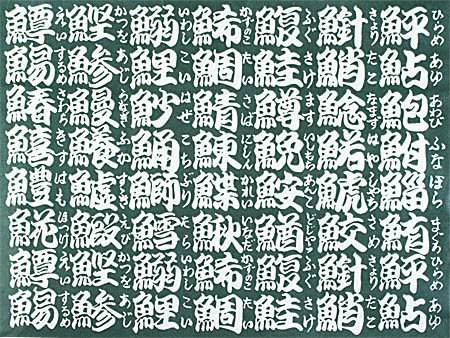 鮃ひらめ 鮎あゆ 鮑あわび 鮒ふな ぼら 鮪まぐろ 鮃ひらめ 鮎あゆ
さより 鮹たこ 鯰なまず 鰙はや 鯱しゃち 鮫さめ さより 鮹たこ
鰒ふぐ 鮭さけ 鱒ます 鮸いしもち 鮟あんこう 鰌どじょう 鰒ふぐ 鮭さけ
鯑かずのこ 鯛たい 鯖さば 鰊にしん 鰈かれい 鰍いなだ 鯑かずのこ 鯛たい
鰯いわし 鯉こい 魦はぜ 鯒こち 鰤ぶり 鱈たら 鰯いわし 鯉こい
鰹かつを 鯵あじ 鰻うなぎ 鱶ふか すずき 鰕えび 鰹かつを 鯵あじ
鱏えい 鯣するめ 鰆さわら 鱚きす 鱧はも 𩸽ほっけ 鱏えい 鯣するめ